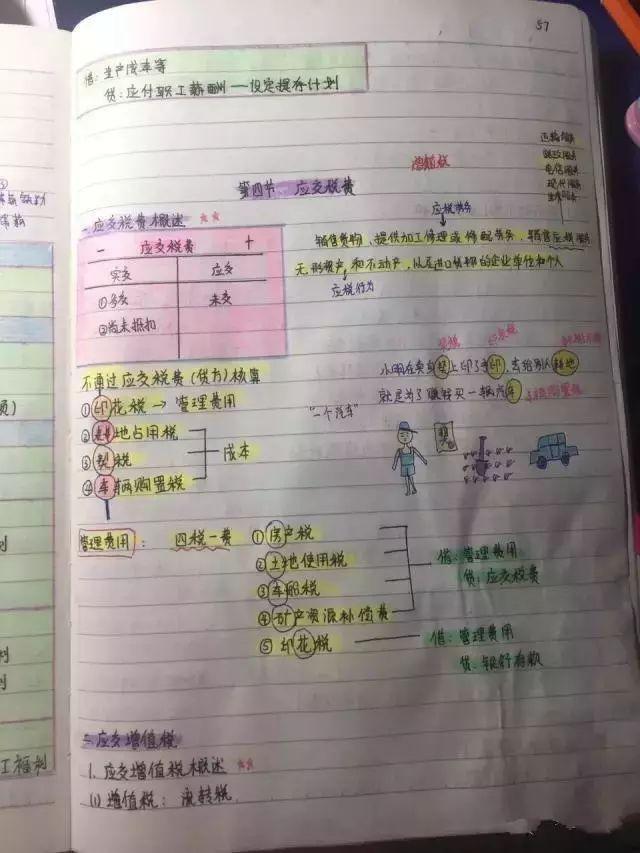 57
借：生产成本等
贷：应付职工薪酬——设定提存计划
增值税
运输服务
邮政服务
电信服务
现代服务
第四节 应交税费
一、应交税费概述 ★★
应税劳务
− 应交税费 +
实交 应交
①多交 未交
②尚未抵扣
销售货物、提供加工修理或修配劳务、销售应税服务
无形资产、和不动产，以及进口货物的企业单位和个人
应税行为
不通过应交税费(贷方)核算
①印花税 → 管理费用
②耕地占用税
③契税
④车辆购置税
成本
契税
印花税
小明在卖身契上印了手印，去给别人耕地
就是为了赚钱买一辆汽车
车辆购置税
"一个汽车"
契
管理费用： 四税一费
①房产税
②土地使用税
③车船税
④矿产资源补偿费
⑤印花税
借：管理费用
贷：应交税费
借：管理费用
贷：银行存款
二、应交增值税
1. 应交增值税概述 ★★
(1) 增值税：流转税
工福利